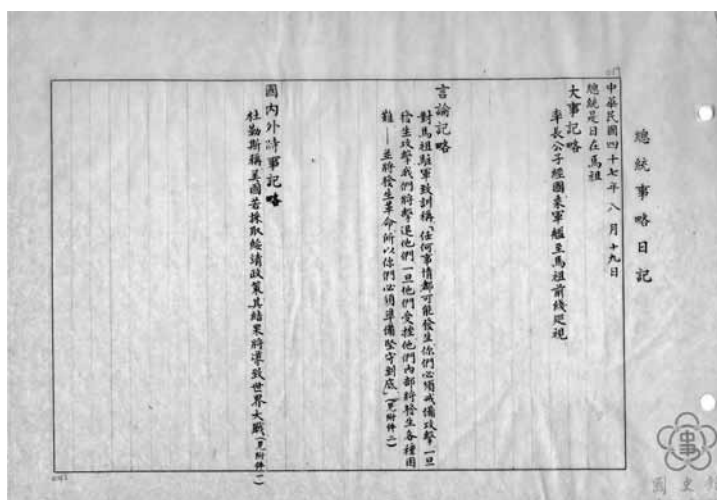 總統事略日記
中華民國四十七年 八 月 十九日
總統是日在馬祖
大事記略
率長公子經國乘軍艦至馬祖前綫巡視
言論記略
對馬祖駐軍致訓稱「任何事情都可能發生你們必須戒備攻擊一旦
發生攻擊我們將擊退他們一旦他們受挫他們內部將發生各種困
難——並將發生革命所以你們必須準備堅守到底」(見附件二)
國內外時事記略
杜勒斯稱美國若採取綏靖政策其結果將導致世界大戰(見附件一)
國史